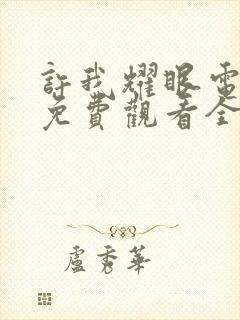 許我耀眼電
免費觀看全
盧秀華